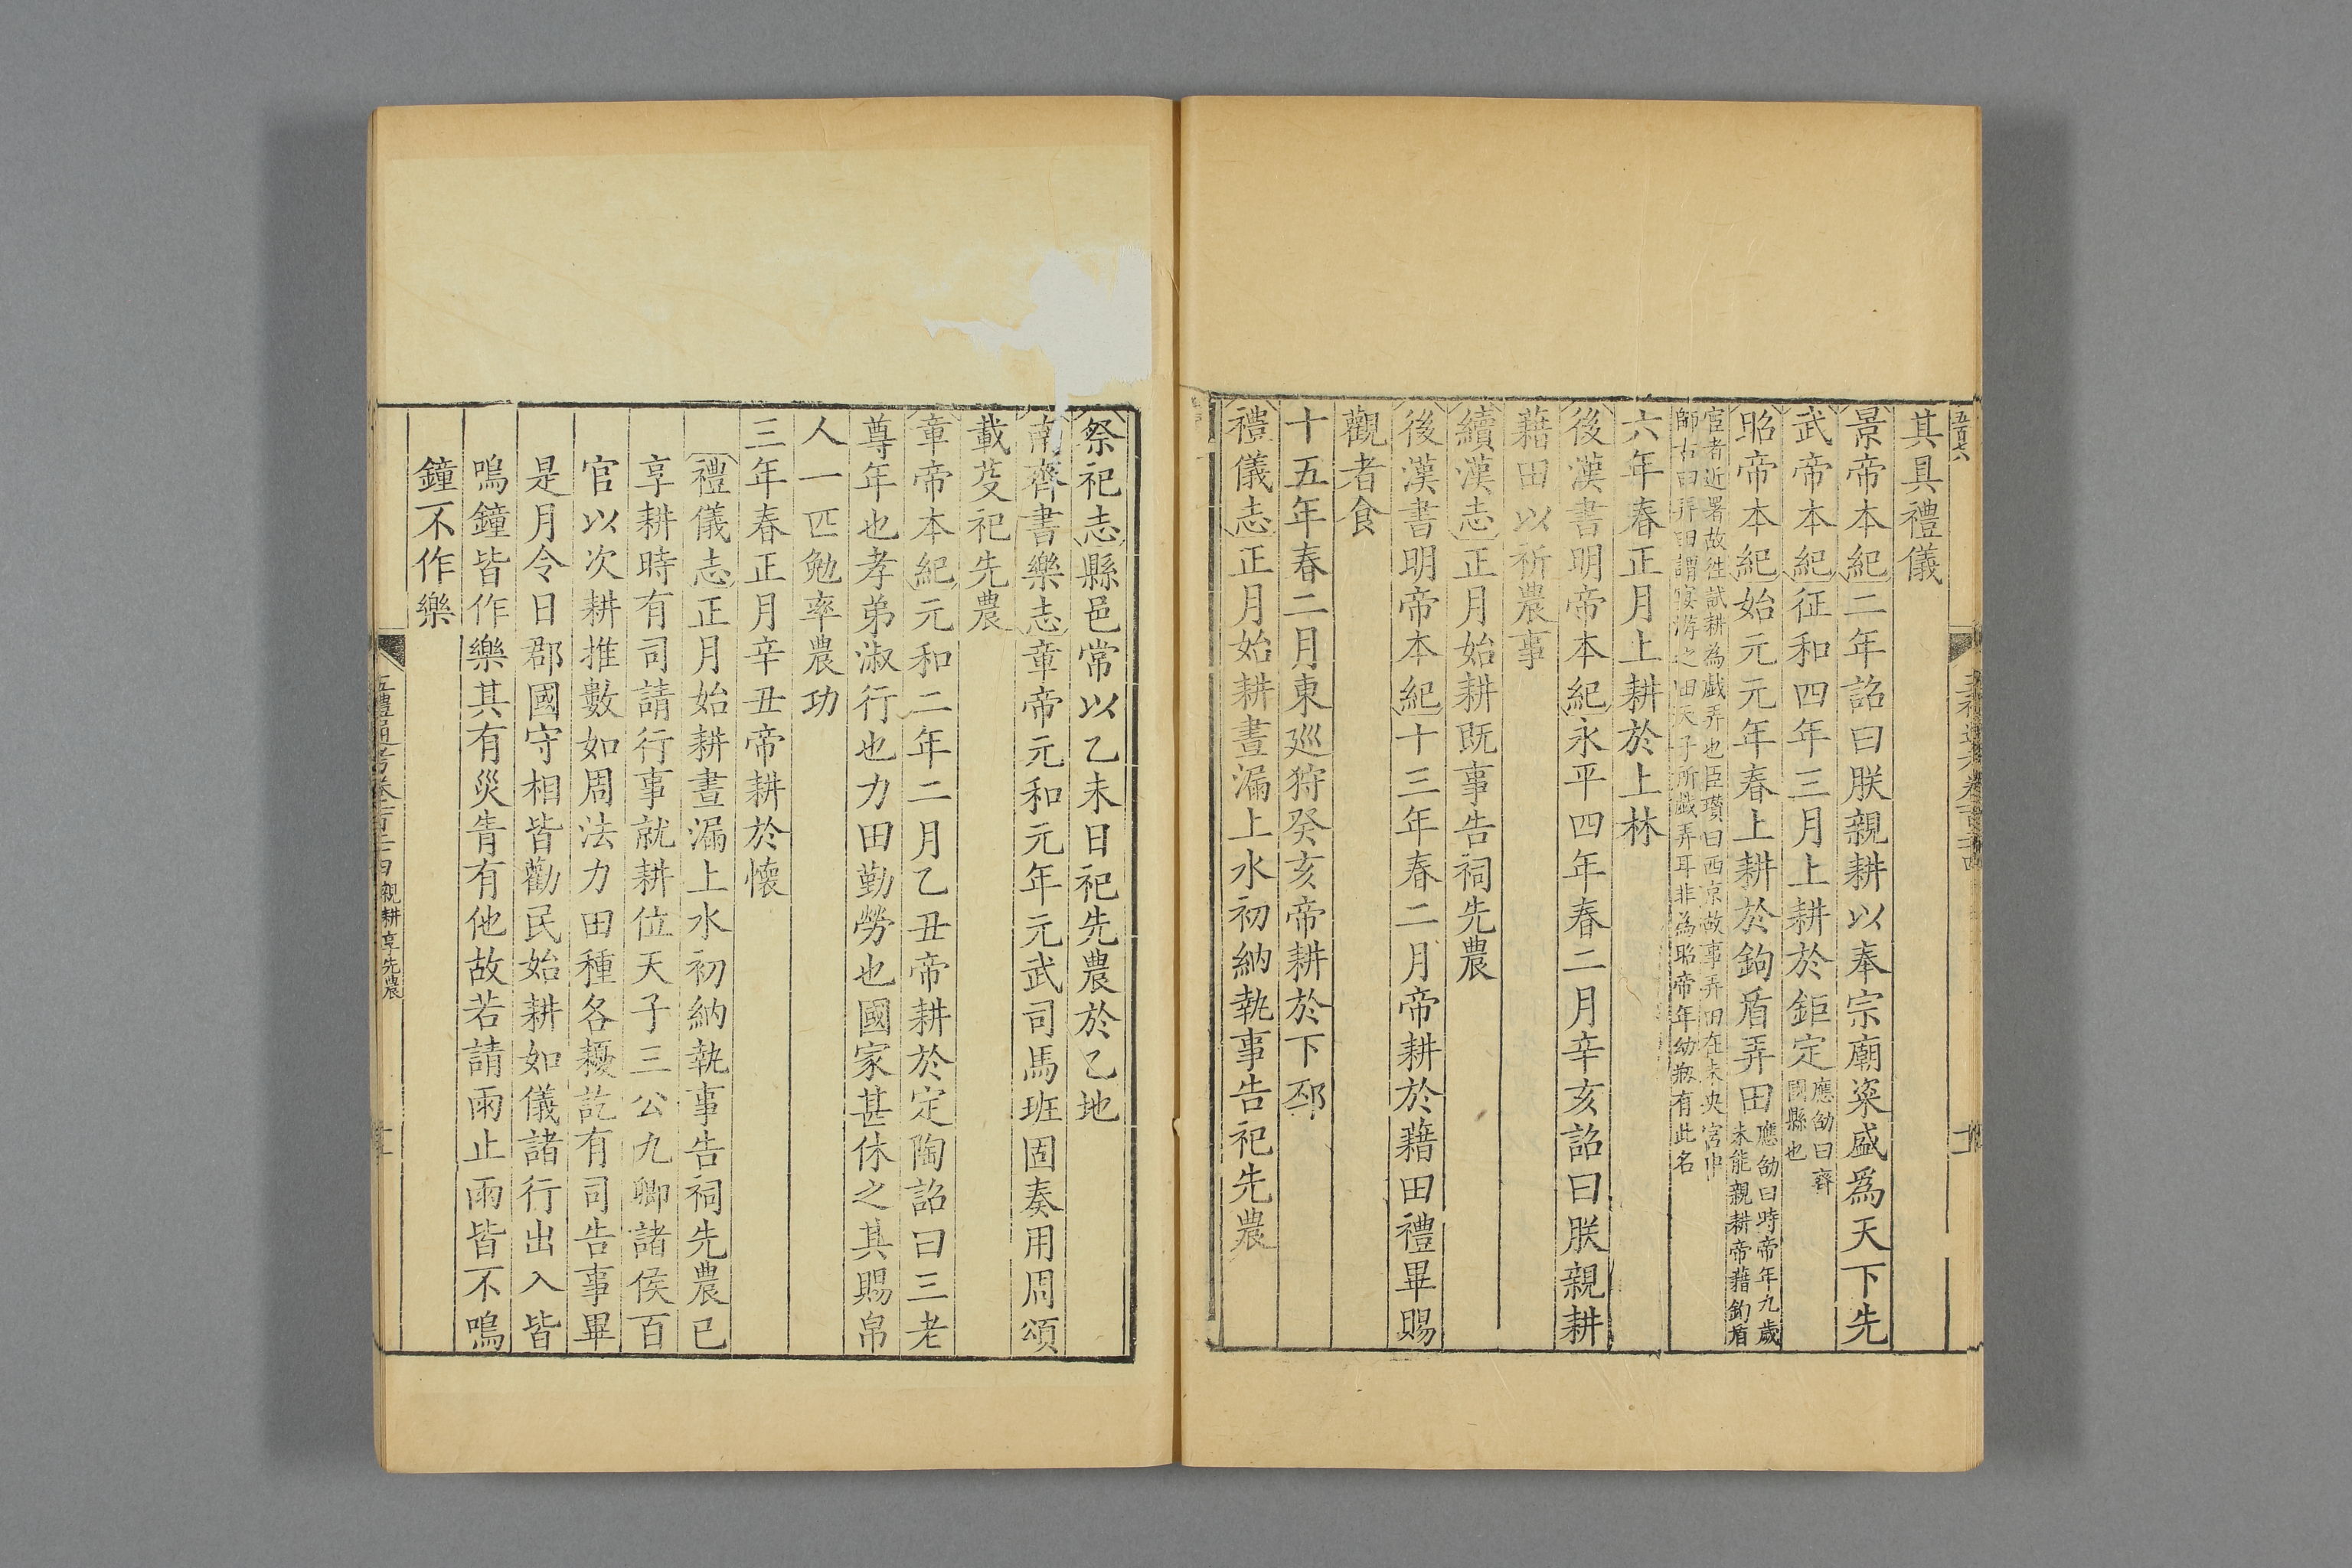 其具禮儀
景帝本紀二年詔曰朕親耕以奉宗廟粢盛爲天下先
武帝本紀征和四年三月上耕於鉅定應劭曰齊
國縣也
昭帝本紀始元元年春上耕於鉤盾弄田應劭曰時帝年九歲
未能親耕帝藉鉤盾
宦者近署故往試耕為戲弄也臣瓚曰西京故事弄田在未央宮中
師古曰弄田謂宴游之田天子所戲弄耳非為昭帝年幼烖有此名
六年春正月上耕於上林
後漢書明帝本紀永平四年春二月辛亥詔曰朕親耕
藉田以祈農事
續漢志正月始耕既事告祠先農
後漢書明帝本紀十三年春二月帝耕於藉田禮畢賜
觀者食
十五年春二月東巡狩癸亥帝耕於下邳
禮儀志正月始耕晝漏上水初納執事告祀先農
祭祀志縣邑常以乙未日祀先農於乙地
南齊書樂志章帝元和元年元武司馬班固奏用周頌
載芟祀先農
章帝本紀元和二年二月乙丑帝耕於定陶詔曰三老
尊年也孝弟淑行也力田勤勞也國家甚休之其賜帛
人一匹勉率農功
三年春正月辛丑帝耕於懷
禮儀志正月始耕晝漏上水初納執事告祠先農已
享耕時有司請行事就耕位天子三公九卿諸侯百
官以次耕推數如周法力田種各耰訖有司告事畢
是月令日郡國守相皆勸民始耕如儀諸行出入皆
鳴鐘皆作樂其有災眚有他故若請雨止雨皆不鳴
鐘不作樂
五禮通考卷一百二十四 親耕享先農